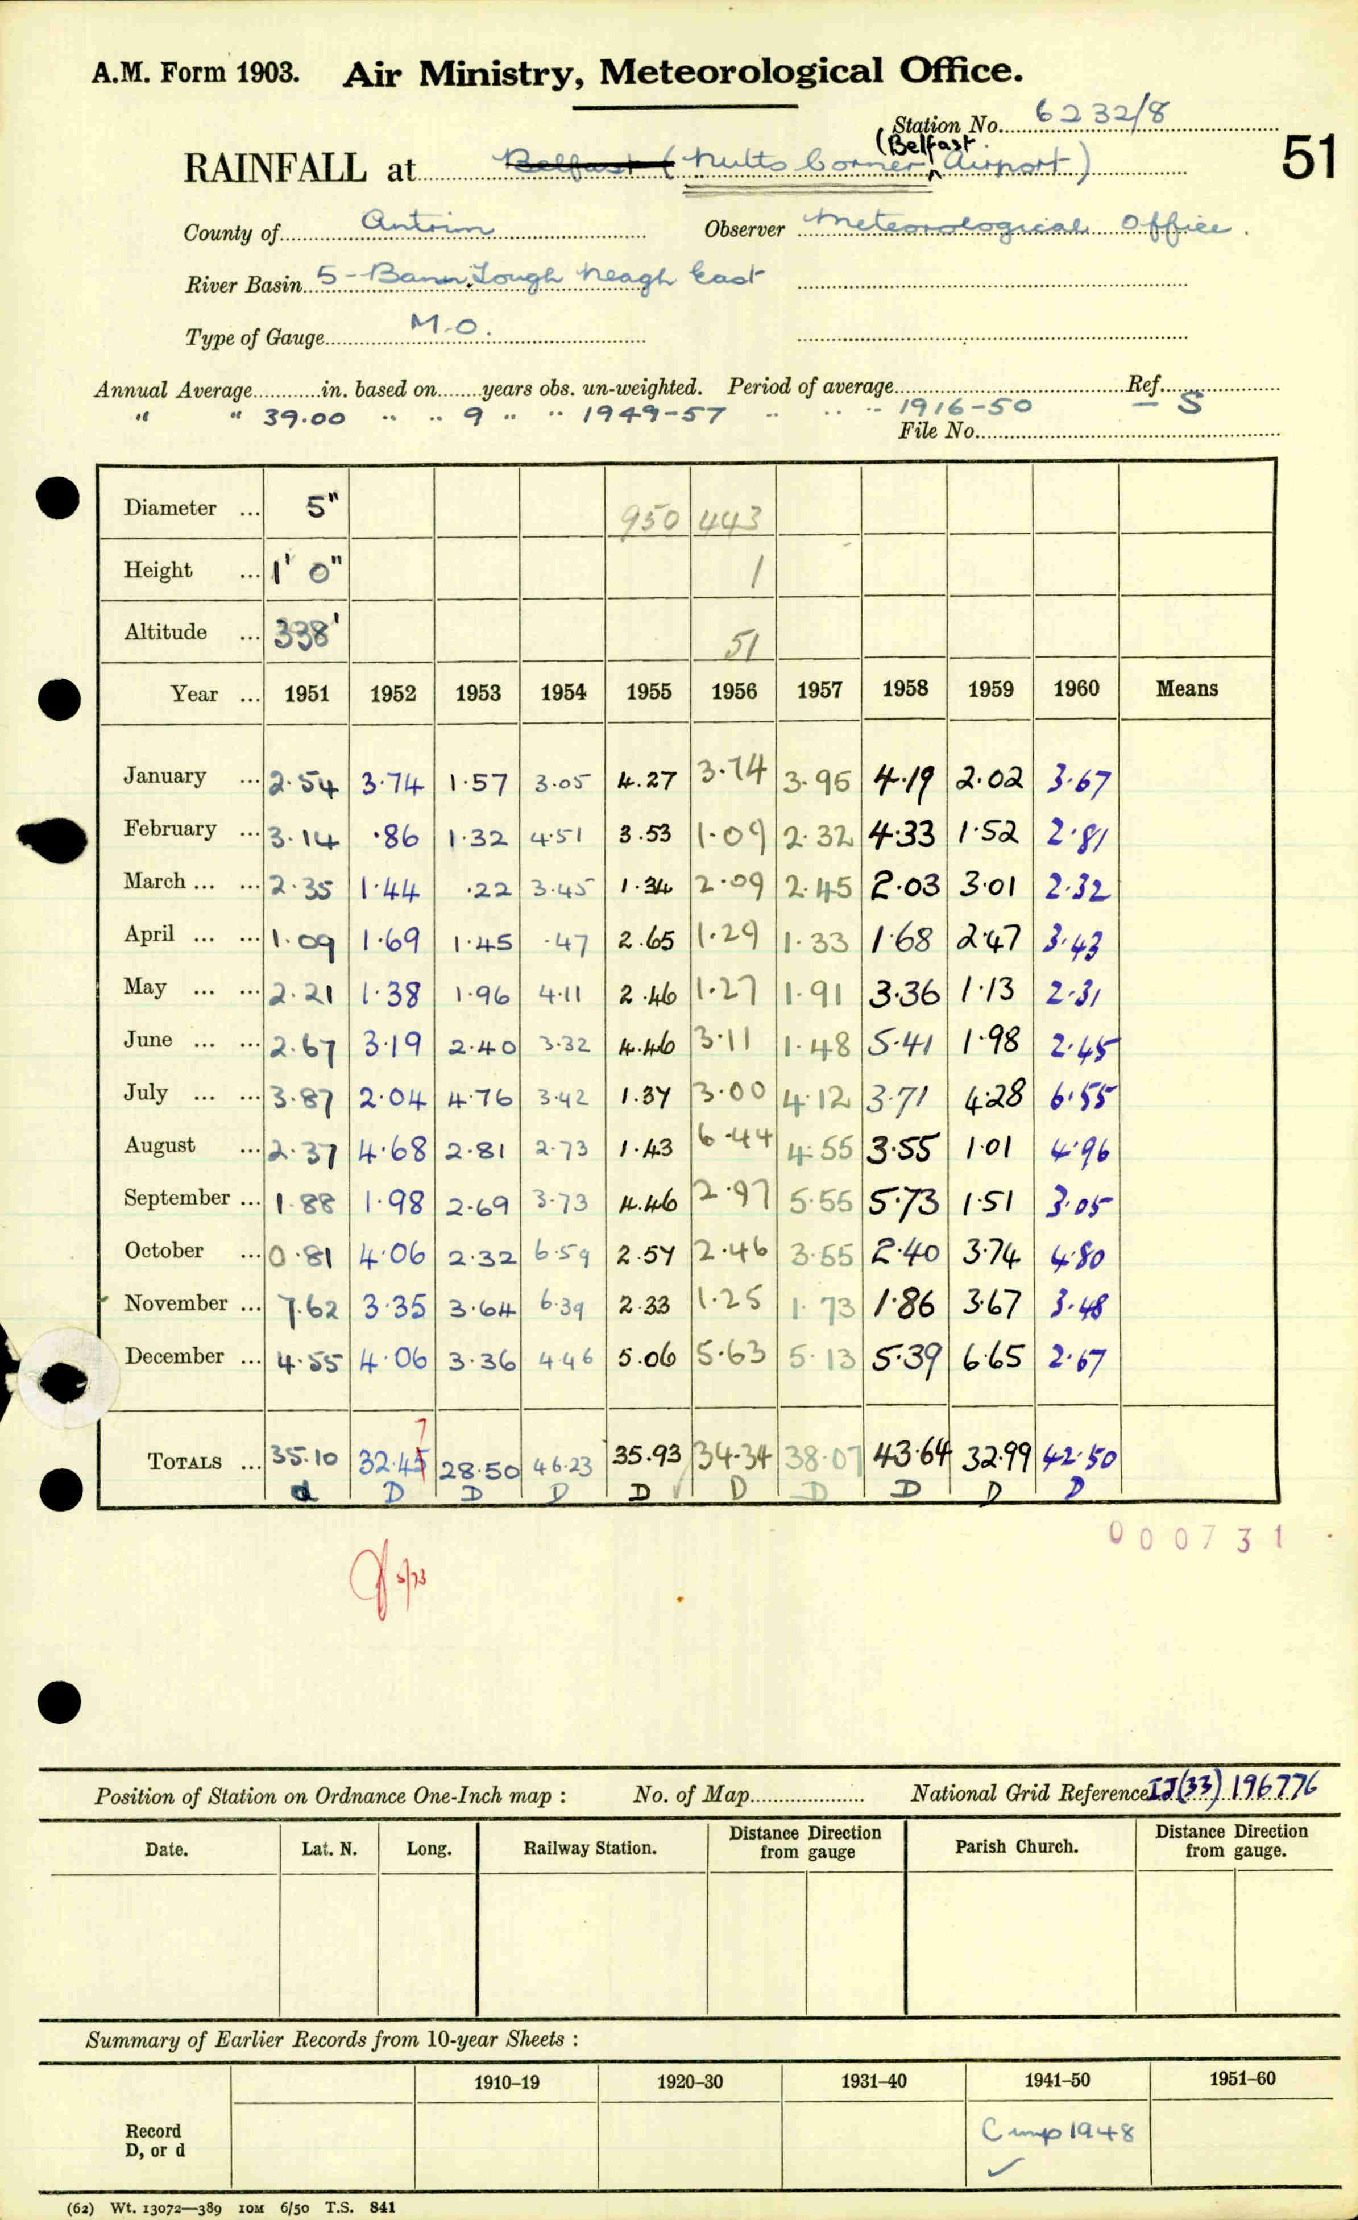 A.M. Form 1903. Air Ministry, Meteorological Office.
Station No. 6232/8
51
(Belfast
RAINFALL at Belfast (Nutts Corner Airport)
County of Antrim Observer Meteorological Office.
River Basin 5 - Bann, Lough Neagh East
Type of Gauge M.O.
Annual Average in. based on years obs. un-weighted. Period of average Ref.
" " 39.00 " " 9 " " 1949-57 " " " 1916-50 - S
File No.
Diameter ... 5" 950 443
Height ... 1' 0" 1
Altitude ... 338' 51
Year ... 1951 1952 1953 1954 1955 1956 1957 1958 1959 1960 Means
January ... 2.54 3.74 1.57 3.05 4.27 3.74 3.95 4.19 2.02 3.67
February ... 3.14 .86 1.32 4.51 3.53 1.09 2.32 4.33 1.52 2.81
March ... ... 2.35 1.44 .22 3.45 1.34 2.09 2.45 2.03 3.01 2.32
April ... ... 1.09 1.69 1.45 .47 2.65 1.29 1.33 1.68 2.47 3.43
May ... ... 2.21 1.38 1.96 4.11 2.46 1.27 1.91 3.36 1.13 2.31
June ... ... 2.67 3.19 2.40 3.32 4.46 3.11 1.48 5.41 1.98 2.45
July ... ... 3.87 2.04 4.76 3.42 1.37 3.00 4.12 3.71 4.28 6.55
August ... 2.37 4.68 2.81 2.73 1.43 6.44 4.55 3.55 1.01 4.96
September ... 1.88 1.98 2.69 3.73 4.46 2.97 5.55 5.73 1.51 3.05
October ... 0.81 4.06 2.32 6.59 2.57 2.46 3.55 2.40 3.74 4.80
November ... 7.62 3.35 3.64 6.39 2.33 1.25 1.73 1.86 3.67 3.48
December ... 4.55 4.06 3.36 4.46 5.06 5.63 5.13 5.39 6.65 2.67
7
TOTALS ... 35.10 32.45 28.50 46.23 35.93 34.34 38.07 43.64 32.99 42.50
d D D D D D D D D D
000731
5/73
Position of Station on Ordnance One-Inch map : No. of Map National Grid Reference IJ(33) 196776
Date. Lat. N. Long. Railway Station. Distance Direction from gauge Parish Church. Distance Direction from gauge.
Summary of Earlier Records from 10-year Sheets :
1910–19 1920–30 1931–40 1941–50 1951–60
Record
D, or d
Comp 1948
(62) Wt. 13072—389 10M 6/50 T.S. 841